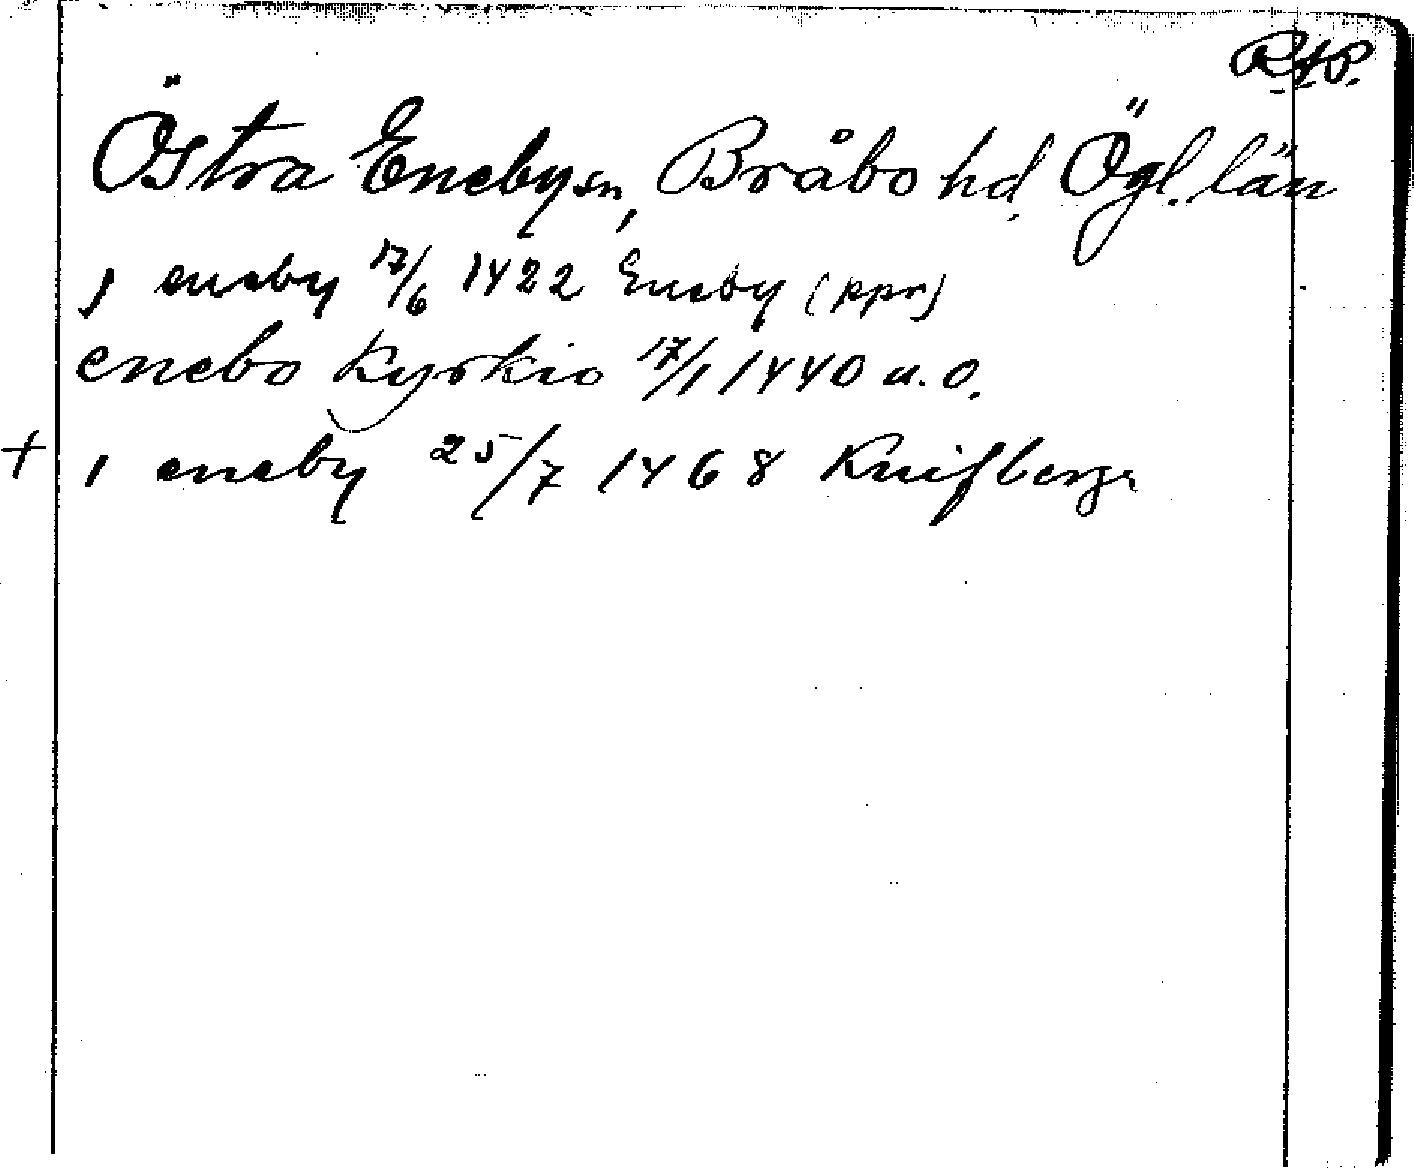 RAP.
Östra Eneby sn, Bråbo hd, Ögl. län
j eneby 17/6 1422 Eneby (ppr)
enebo kyrkio 17/1 1440 u.o.
+ i eneby 25/7 1468 Knifberga